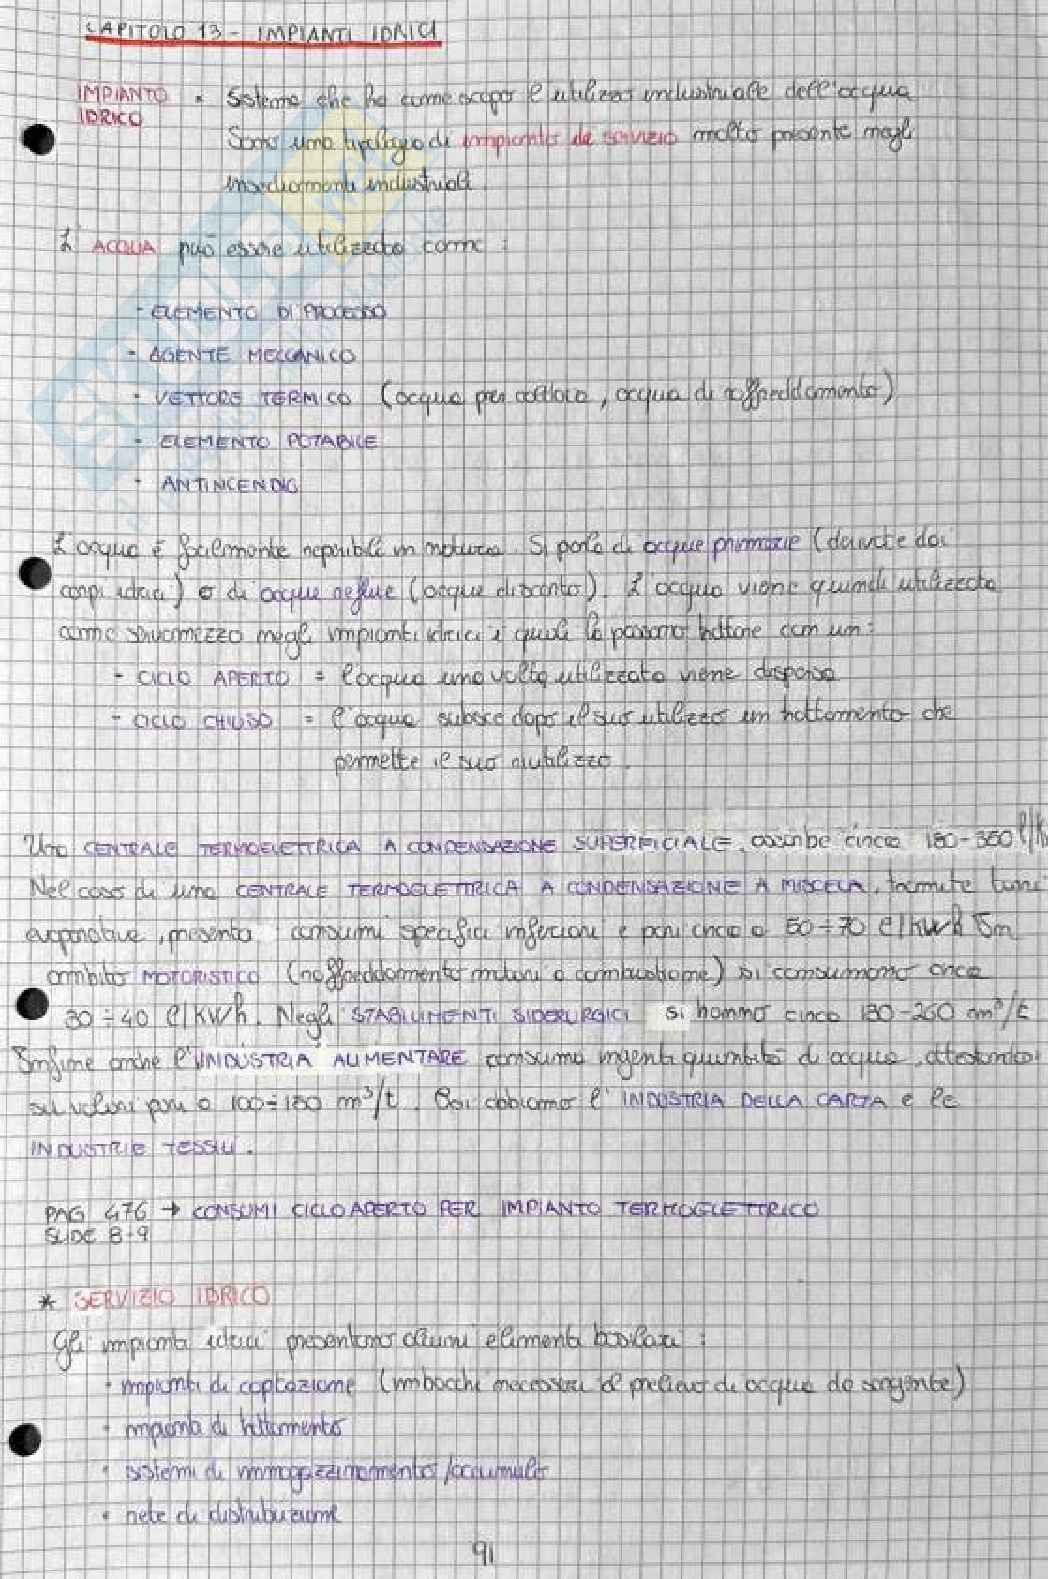 CAPITOLO 13 - IMPIANTI IDRICI
IMPIANTO IDRICO • Sistema che ha come scopo l'utilizzo industriale dell'acqua
Sono una tipologia di impianto di servizio molto presente negli
insediamenti industriali.
L'ACQUA può essere utilizzata come :
- ELEMENTO DI PROCESSO
- AGENTE MECCANICO
- VETTORE TERMICO (acqua per caldaia, acqua di raffreddamento)
- ELEMENTO POTABILE
- ANTINCENDIO
L'acqua è facilmente reperibile in natura. Si parla di acque primarie (derivate dai
corpi idrici) o di acque reflue (acque di scarto). L'acqua viene quindi utilizzata
come negli impianti idrici i quali la possono trattare con un:
- CICLO APERTO = l'acqua una volta utilizzata viene dispersa
- CICLO CHIUSO = l'acqua subisce dopo il suo utilizzo un trattamento che
permette il suo riutilizzo.
Una CENTRALE TERMOELETTRICA A CONDENSAZIONE SUPERFICIALE, assorbe circa 180-350
Nel caso di una CENTRALE TERMOELETTRICA A CONDENSAZIONE A MISCELA, tramite torri
evaporative, presenta consumi specifici inferiori e pari circa a 50÷70 l/kWh. In
ambito MOTORISTICO (raffreddamento motori a combustione) si consumano circa
30÷40 l/kWh. Negli STABILIMENTI SIDERURGICI si hanno circa m³/t
Infine anche l'INDUSTRIA ALIMENTARE consuma ingenti quantità di acqua, attestandosi
su valori pari a 100÷150 m³/t. Poi abbiamo l'INDUSTRIA DELLA CARTA e le
INDUSTRIE TESSILI.
PAG 476 → CONSUMI CICLO APERTO PER IMPIANTO TERMOELETTRICO
SLIDE 8-9
* SERVIZIO IDRICO
Gli impianti idrici presentano alcuni elementi basilari :
• impianti di captazione (imbocchi necessari al prelievo di acqua da sorgente)
• impianti di trattamento
• sistemi di immagazzinamento/accumulo
• rete di distribuzione
91